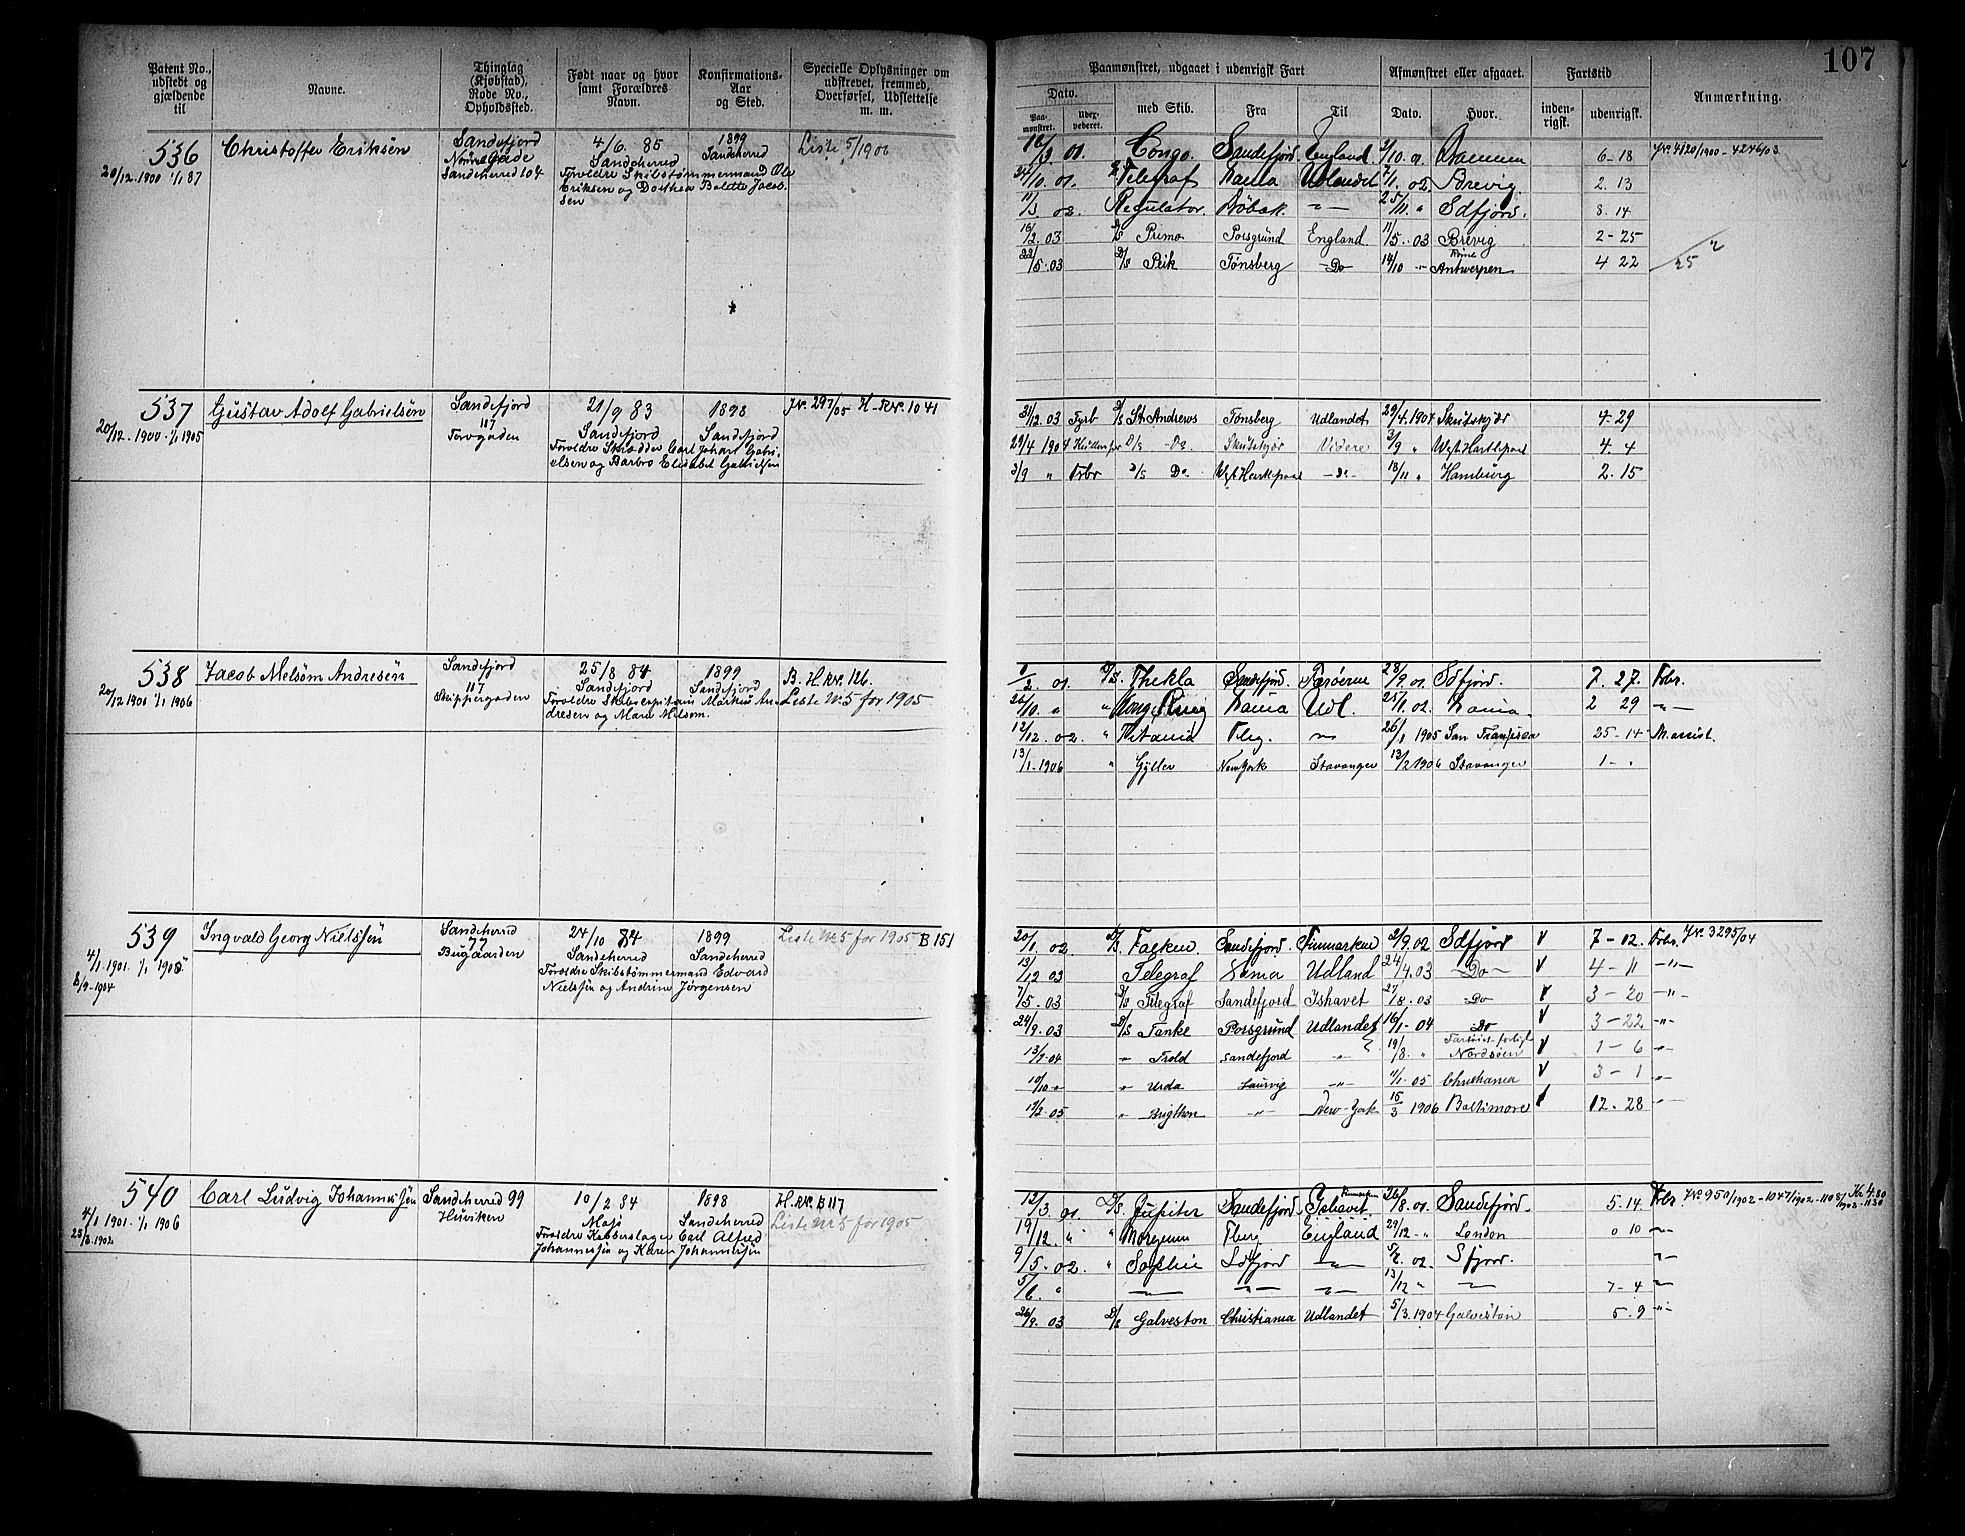 107
Patent No., udstedt og gjældende til
Navne.
Thinglag (Kjøbstad), Rode No., Opholdssted.
Født naar og hvor samt Forældres Navn.
Konfirmations-Aar og Sted.
Specielle Oplysninger om udskrevet, fremmed, Overførsel, Udslettelse m. m.
Paamønstret, udgaaet i udenrigsk Fart
Afmønstret eller afgaaet.
Fartstid
Anmærkning.
Dato.
Paamønstret.
med Skib.
Fra
Til
Dato.
Hvor.
indenrigsk.
udenrigsk.
536
20/12.1900 1/1 87
Christoffer Eriksen
Sandefjord
Sandeherred 104
4/6. 85
Sandeherred
Forældre Skibstømmermand Ole
Eriksen og Dorthea Bolette Jacob-
sen
1899
Sandeherred
Liste 5/1906
16/3 01. Congo. Sandefjord England /10 01 Drammen 6-18 Jr. 4820/1900 - 4246/03.
24/10. 01. Telegraf Laurvig Udlandet /1. 02 Brevig 2. 13
11/3. 02. Regulator. Drøbak. 25/11. " Sdfjord. 8. 14
16/2. 03 D/S Primo Porsgrund England. 11/5. 03 Brevig 2-25
22/5. 03 D/S Peik Tønsberg Do 14/10 Antwerpen 4 22
537
20/12. 1900. 1/1 1905
Gustav Adolf Gabrielsen
Sandefjord
117
Torvgaden
21/9 83
Sandefjord
Forældre Skrædder Carl Johan Gabri-
elsen og Barbro Elisabet Gabrielsen
1898
Sandefjord
Jr. 297/05 H. R Nr. 1041
31/12. 03 Fyrb D/S St. Andrews Tønsberg Udlandet 29/4. 1904 Skutskjær 4-29
29/4 1904 D/S Do Skutskjær Videre 3/9 " West Hartlepool 4. 4
3/9 " Frbr D/S Do West Hartlepool Do 18/11 " Hamburg 2. 15
538
20/12 1900 1/1 1906
Jacob Melsom Andresen
Sandefjord
117
Skippergaden
25/8 84
Sandefjord
Forældre Skibscaptain Markus An-
dresen og Maren Melsom.
1899
Sandefjord
B. H. R Nr. 126.
Liste No 5 for 1905
1/2. 01 D/S Thekla Sandefjord Færøerne 28/9. 01 Sdfjord. 7. 27. Frbr.
26/10. " " Kong Ring Udl. 25/1. 02. 2 29
12/12. 02. " Titania Tbg. 26/1 1905 San Francisco 25-14 M. assist.
13/1. 1906 " Gyller New York Stavanger 13/2 1906 Stavanger 1-
539
4/1. 1901. 1/1 1905
8/9-1904
Ingvald Georg Nielssen
Sandeherred
77
Bugaarden
24/10 84
Sandeherred
Forældre Skibstømmermand Edvard
Nielssen og Andrine Jørgensen
1899
Sandeherred
Liste No 5 for 1905 B 151
20/1. 02 D/S Falken Sandefjord Finmarken 2/9. 02 Sdfjord V 7-02. Frbr. Jr. 3295/04
13/12 03 Telegraf Udland 24/4. 03 Do V 4-11
7/5. 03 D/S Telegraf Sandefjord Ishavet 27/8. 03 Do V 3-20
24/9. 03 D/S Tanke Porsgrund Udlandet 16/1-04 Do V 3-22
13/7. 04 " Trold Sandefjord 19/8. " Nordsøen V 1-6
10/10 " Urda Laurvig /1. 05 Christiania V 3-1
17/2. 05 " Brighton New-York 15/3 1906 Baltimore 12. 28
540
4/1 1901. 1/1 1906
23/3. 1902.
Carl Ludvig Johannessen
Sandeherred 99
Huvikene
10/2 84
Moss
Forældre Kobberslager Carl Alfred
Johannessen og Karen Johannessen
1898
Sandeherred
H. R Nr. B 117
Liste No 5 for 1905
12/3. 01 D/S Jupiter Sandefjord Ishavet. 26/8. 01. Sandefjord. 5. 14. Frbr. Jr. 950/1902 - 1047/1902
19/12. " " Morgenen Tberg England 29/12 London 0 10
9/5. 02. " Sophie Sdfjord 5/6. 02. Sfjord.
5/6. " 13/12 " 7-4
26/9. 03 D/S Galveston Christiania Udlandet 5/3. 1904 Galveston 5. 9